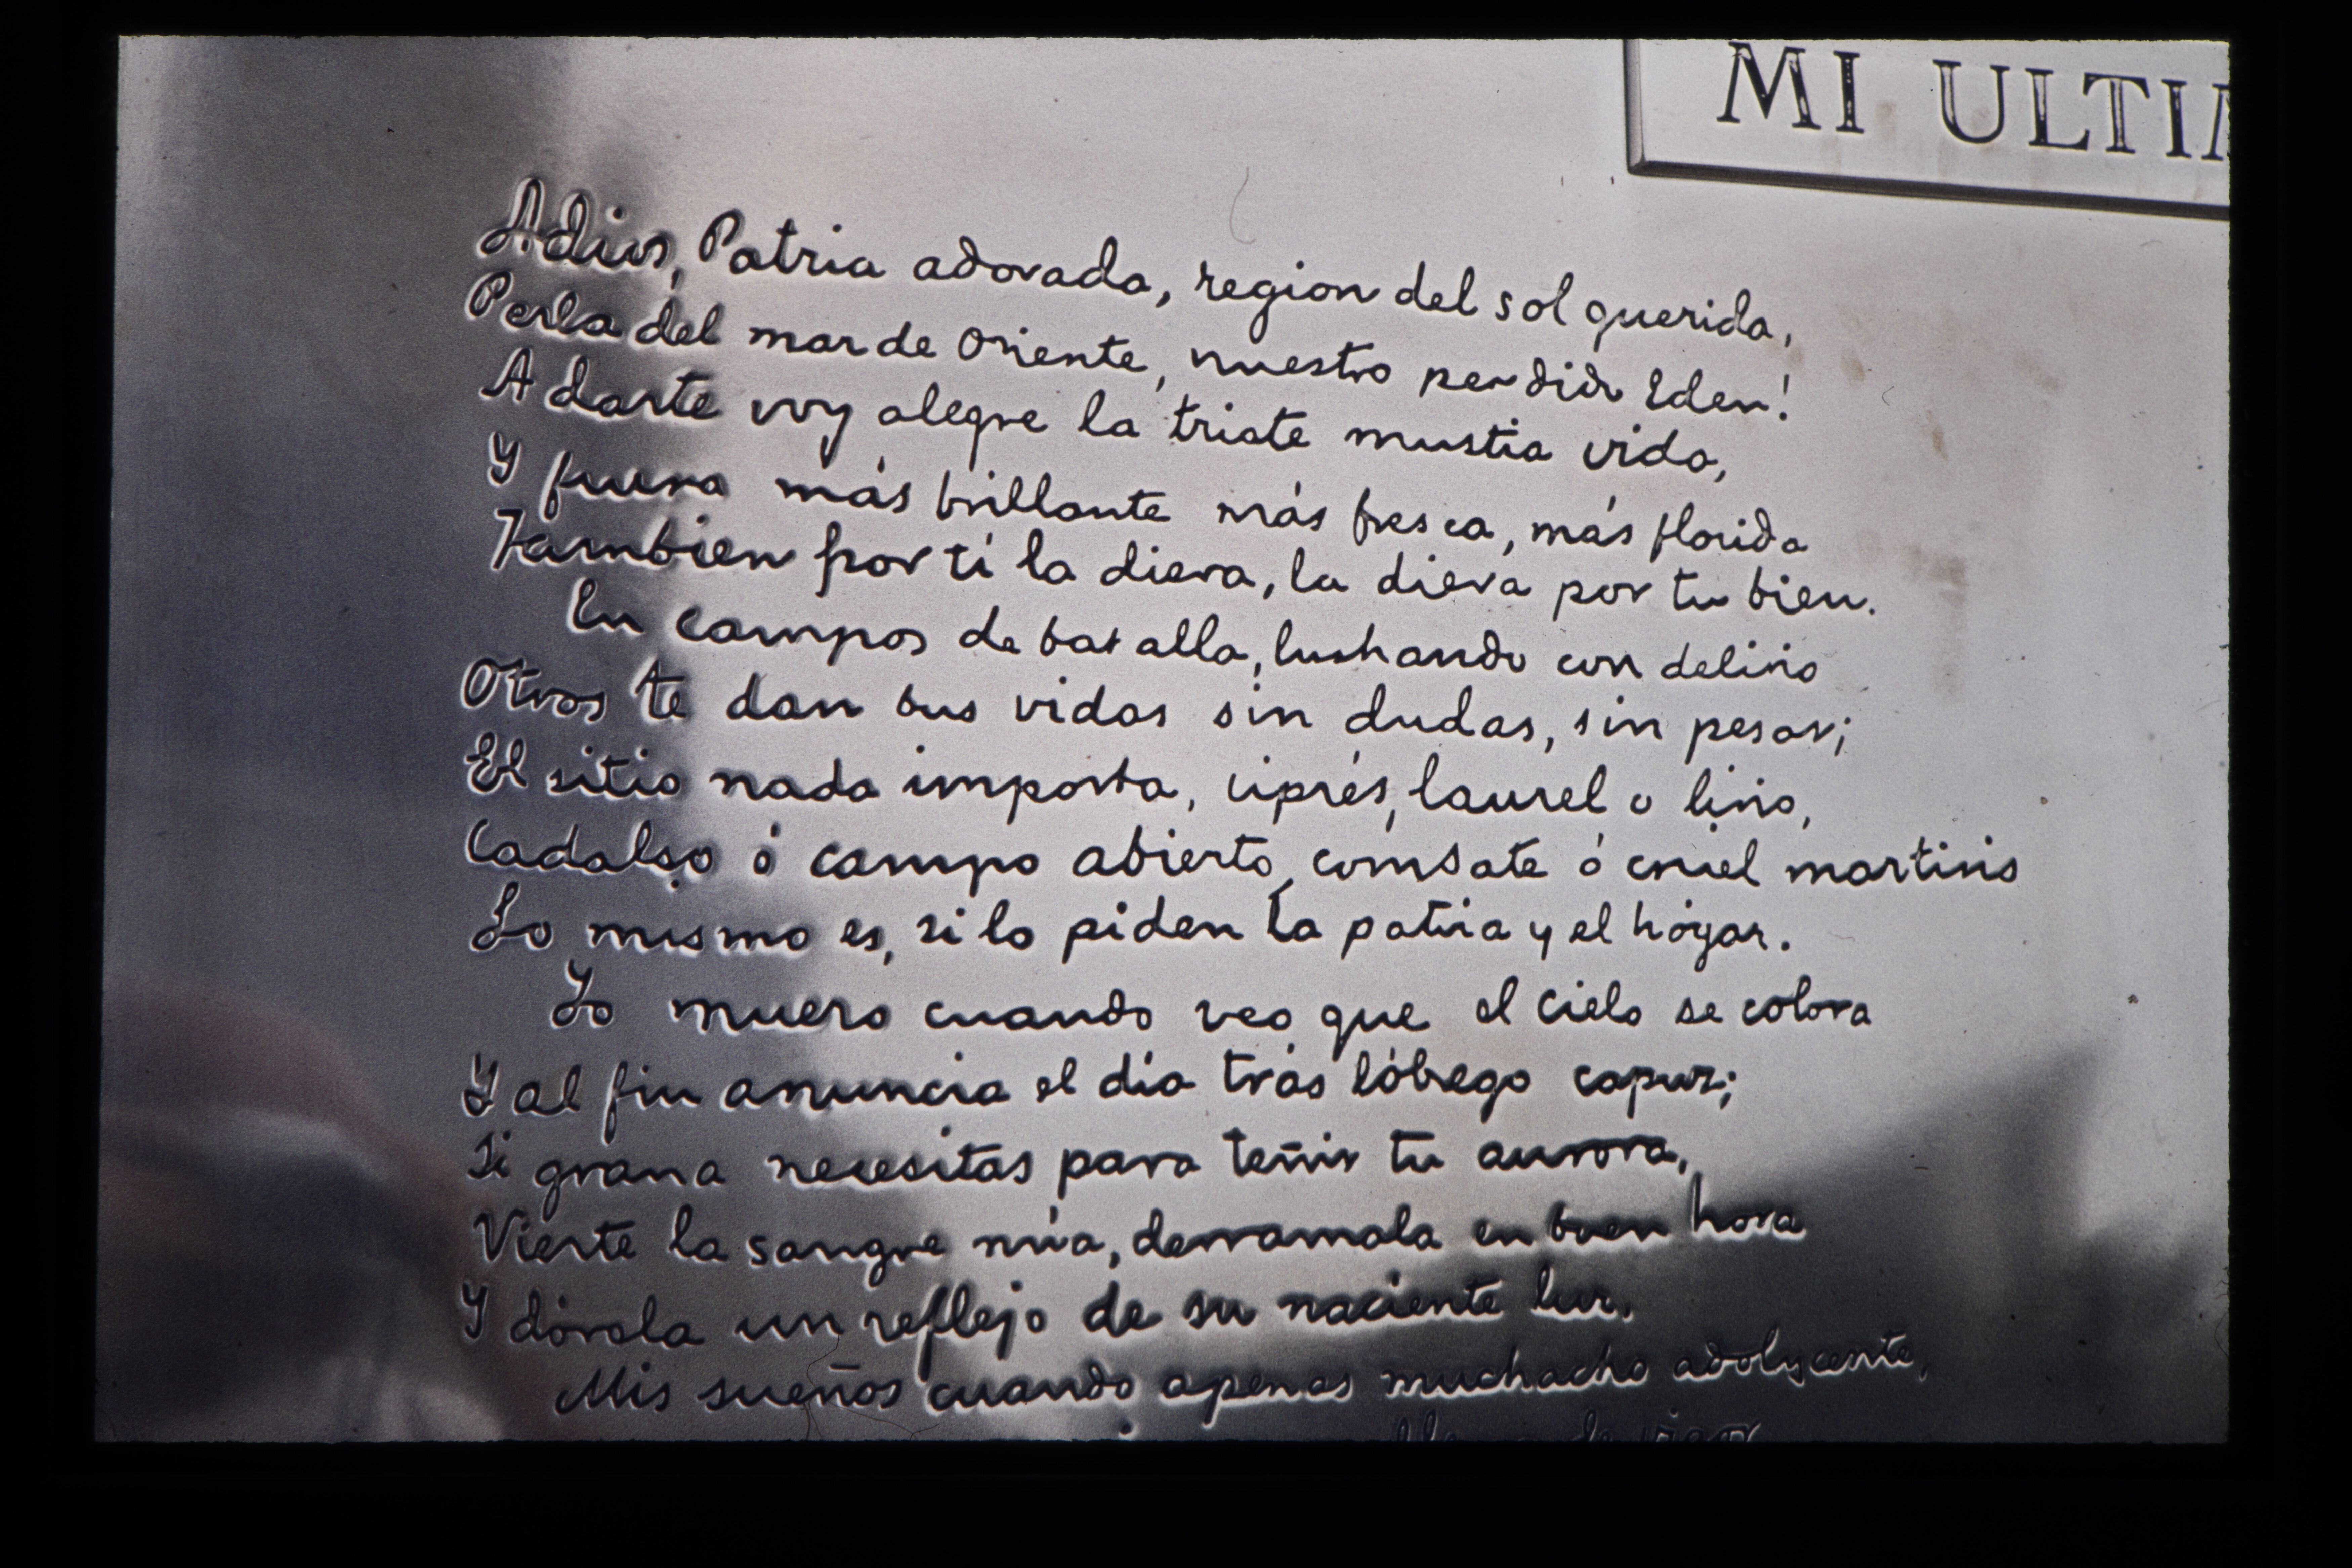 MI ULTI
Adios, Patria adorada, region del sol querida,
Perla del mar de Oriente, nuestro perdido Eden!
A darte voy alegre la triste mustia vida,
Y fuera más brillante más fresca, más florida
Tambien por tí la diera, la diera por tu bien.
En campos de batalla, luchando con delirio
Otros te dan sus vidas sin dudas, sin pesar;
El sitio nada importa, ciprés, laurel o lirio,
Cadalso ó campo abierto, combate ó cruel martirio
Lo mismo es, si lo piden la patria y el hógar.
Yo muero cuando veo que el cielo se colora
Y al fin anuncia el día trás lóbrego capuz;
Si grana necesitas para teñir tu aurora,
Vierte la sangre mía, derramala en buen hora
Y dórola un reflejo de su naciente luz.
Mis sueños cuando apenas muchacho adolycente,
de vigor